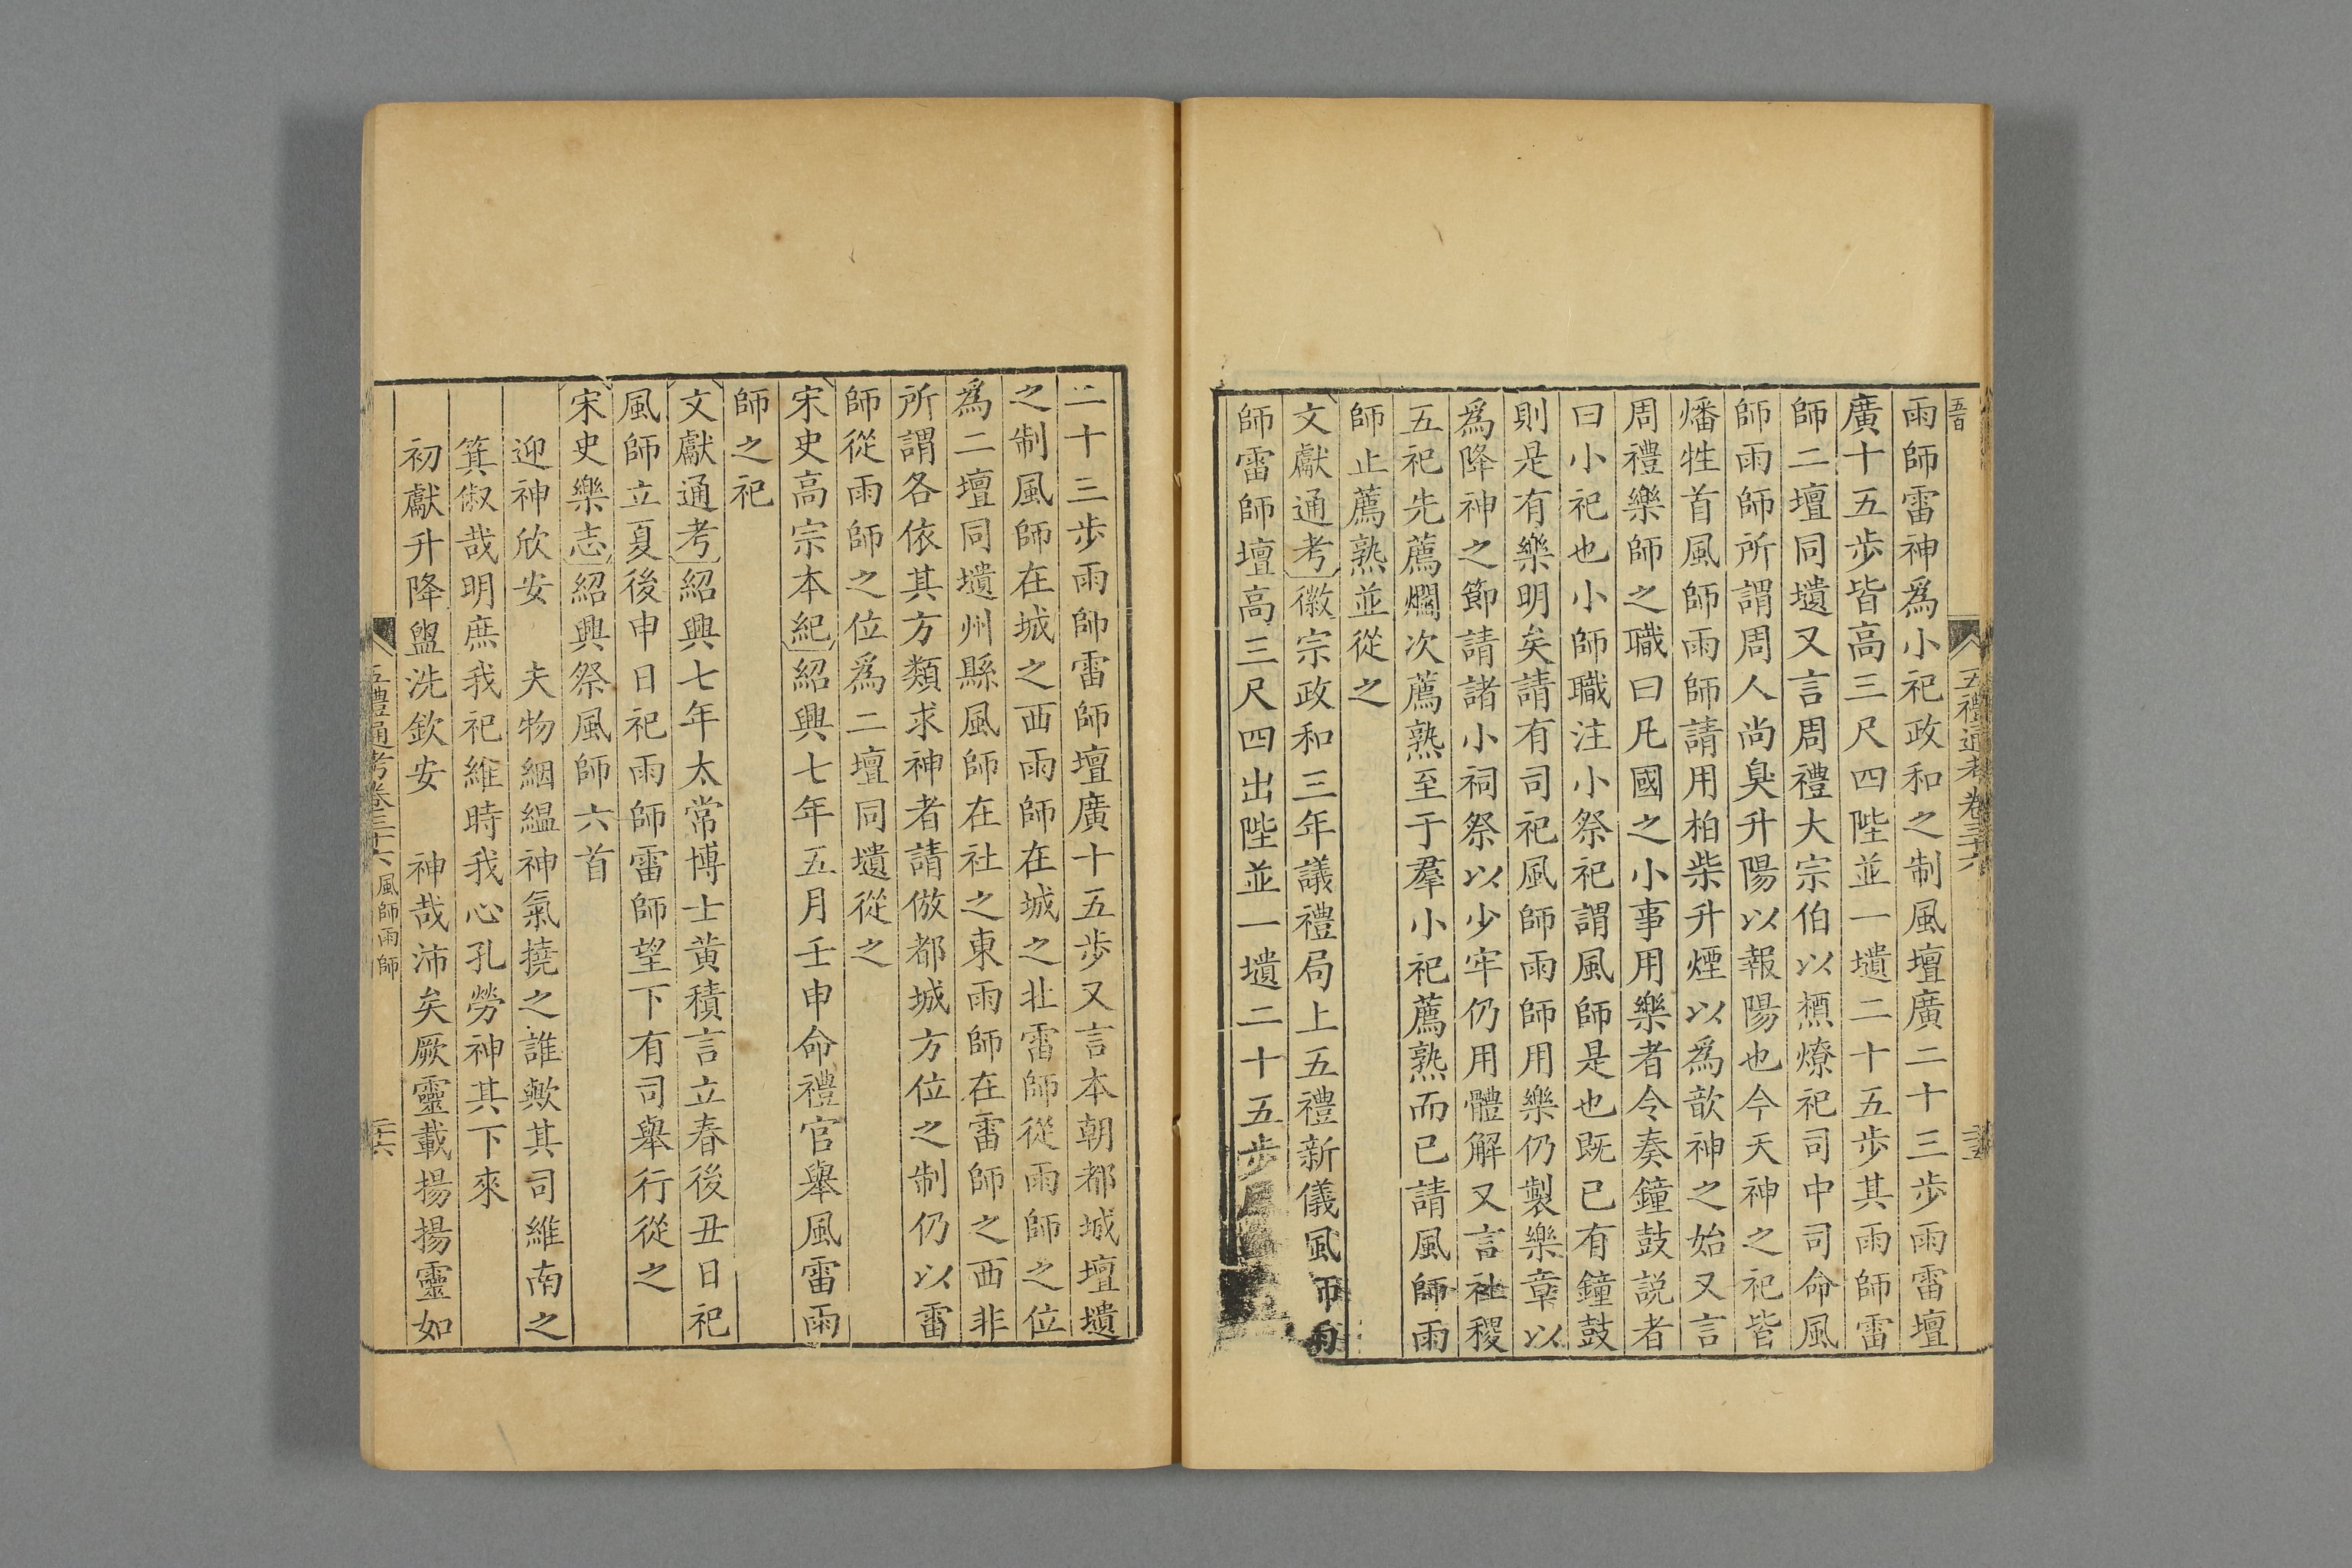 五禮通考卷三十六
雨師雷神爲小祀政和之制風壇廣二十三步雨雷壇
廣十五步皆高三尺四陛並一壝二十五步其雨師雷
師二壇同壝又言周禮大宗伯以槱燎祀司中司命風
師雨師所謂周人尚臭升陽以報陽也今天神之祀皆
燔牲首風師雨師請用柏柴升煙以爲歆神之始又言
周禮樂師之職曰凡國之小事用樂者令奏鐘鼓説者
曰小祀也小師職注小祭祀謂風師是也既已有鐘鼓
則是有樂明矣請有司祀風師雨師用樂仍製樂章以
爲降神之節請諸小祠祭以少牢仍用體解又言社稷
五祀先薦爓次薦熟至于羣小祀薦熟而已請風師雨
師止薦熟並從之
文獻通考徽宗政和三年議禮局上五禮新儀風
師雷師壇高三尺四出陛並一壝二十五步
二十三步雨師雷師壇廣十五步又言本朝都城壇壝
之制風師在城之西雨師在城之北雷師從雨師之位
爲二壇同壝州縣風師在社之東雨師在雷師之西非
所謂各依其方類求神者請倣都城方位之制仍以雷
師從雨師之位爲二壇同壝從之
宋史高宗本紀紹興七年五月壬申命禮官舉風雷雨
師之祀
文獻通考紹興七年太常博士黄積言立春後丑日祀
風師立夏後申日祀雨師雷師望下有司舉行從之
宋史樂志紹興祭風師六首
迎神欣安 夫物絪縕神氣撓之誰歟其司維南之
箕俶哉明庶我祀維時我心孔勞神其下來
初獻升降盥洗欽安 神哉沛矣厥靈載揚揚靈如
五禮通考卷三十六 風師雨師 二十六